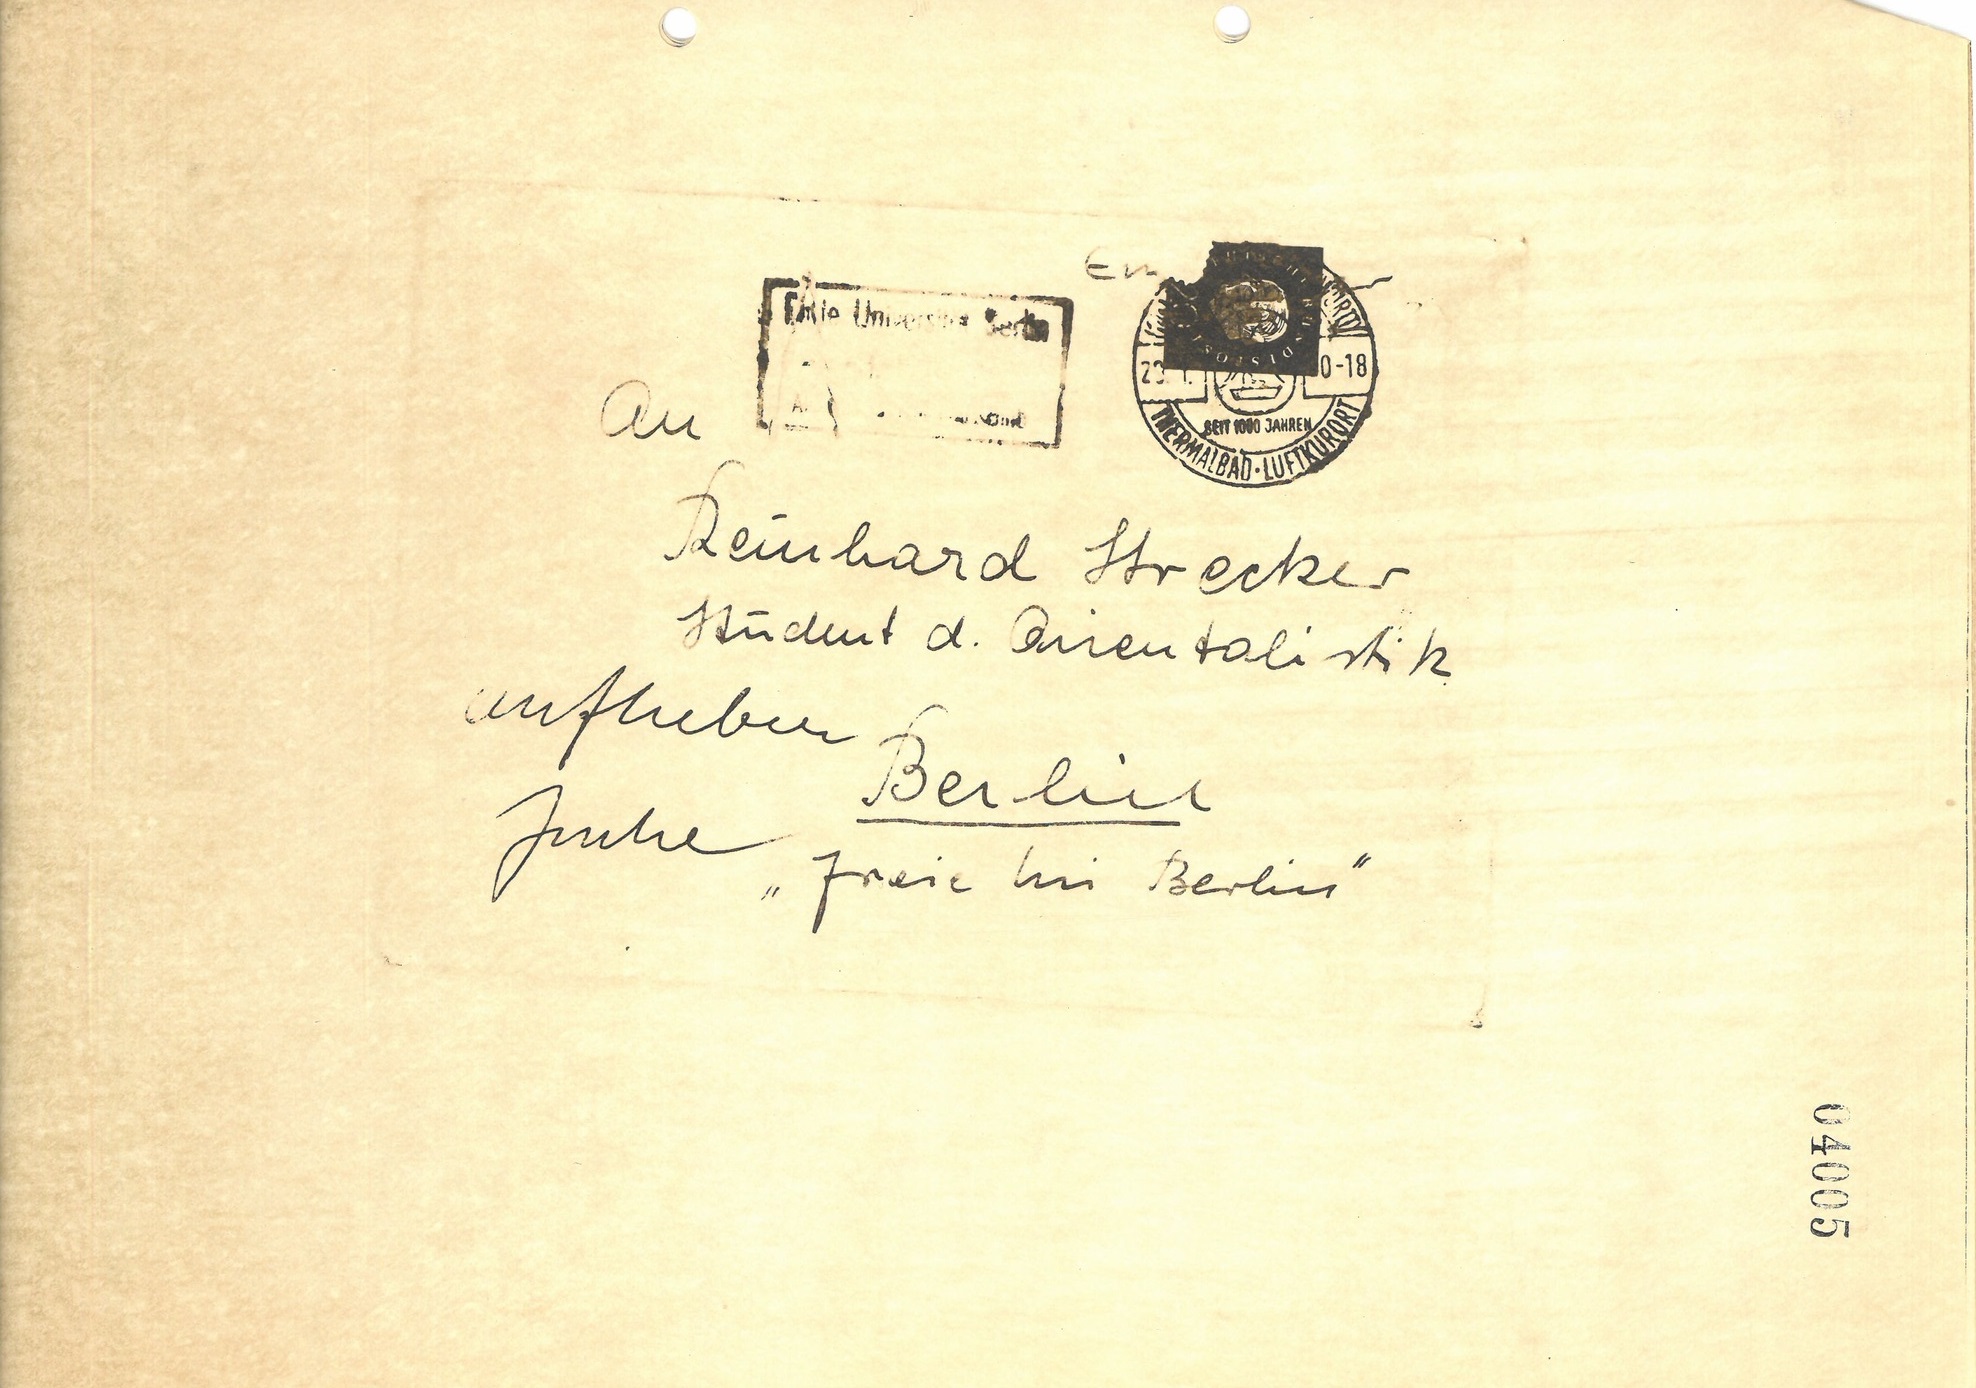 Freie Universität Berlin
An
0-18
SEIT 1000 JAHREN
THERMALBAD · LUFTKURORT
Reinhard Strecker
Student d. Orientalistik
aufheben
Berlin
"Freie Uni Berlin"
04005